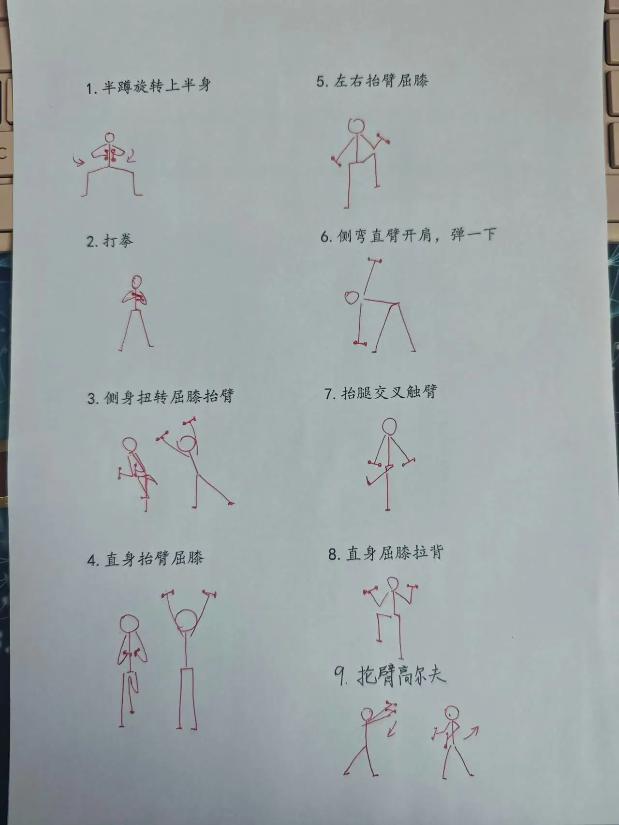 1.半蹲旋转上半身
2.打拳
3.侧身扭转屈膝抬臂
4.直身抬臂屈膝
5.左右抬臂屈膝
6.侧弯直臂开肩，弹一下
7.抬腿交叉触臂
8.直身屈膝拉背
9.抡臂高尔夫
C